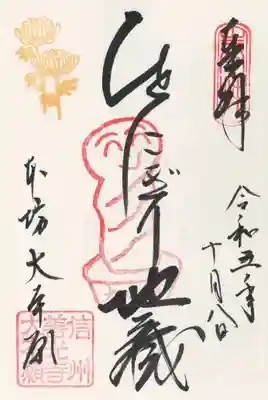 奉拝
令和五年
十月八日
ひとにぎり地蔵
本坊 大本願
信州
善光寺
大本願